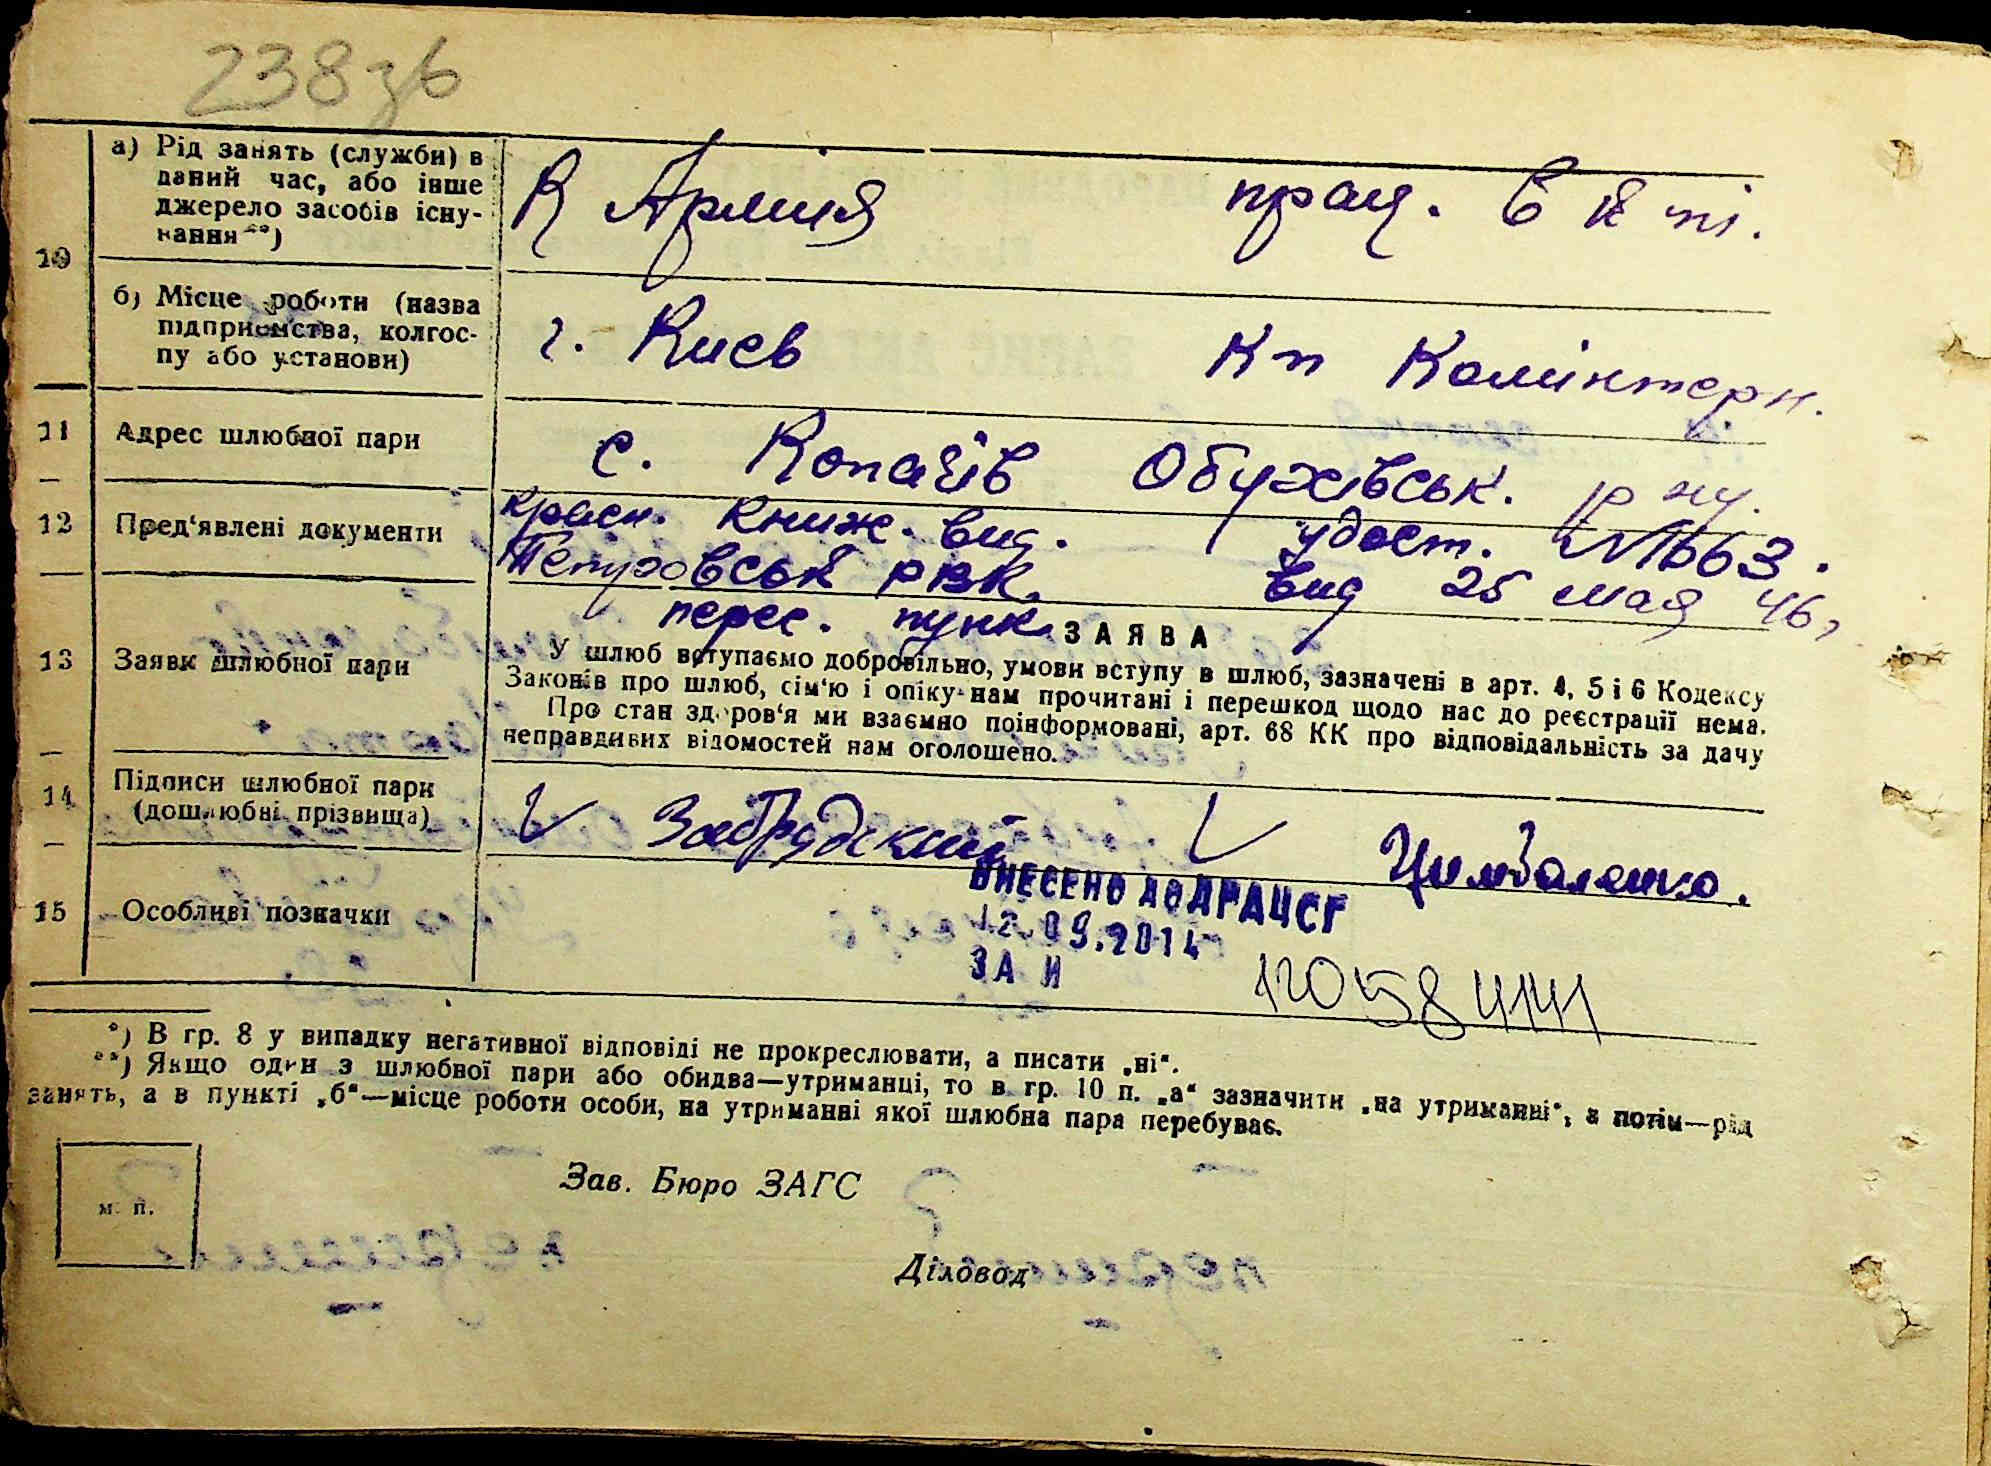 238 зв
10
а) Рід занять (служби) в
даний час, або інше
джерело засобів існу-
вання**)
К Армия прац. в к ті.
б) Місце роботи (назва
підприємства, колгос-
пу або установи)
г. Киев Кп Комінтерн.
11 Адрес шлюбної пари
с. Копачів Обухівськ. р ну.
12 Пред'явлені документи
красн. книж. вид. удост. №1663.
РВК. вид 25 мая 46,
перес. пунк.
13 Заявк шлюбної пари
ЗАЯВА
У шлюб вступаємо добровільно, умови вступу в шлюб, зазначені в арт. 4, 5 і 6 Кодексу
Законів про шлюб, сім'ю і опіку нам прочитані і перешкод щодо нас до реєстрації нема.
Про стан здоров'я ми взаємно поінформовані, арт. 68 КК про відповідальність за дачу
неправдивих відомостей нам оголошено.
14 Підписи шлюбної пари
(дошлюбні прізвища)
V Забрудский V Цимбаленко.
15 Особливі позначки
ВНЕСЕНО ДО ДРАЦСГ
12.09.2014
ЗА №
*) В гр. 8 у випадку негативної відповіді не прокреслювати, а писати „ні“.
**) Якщо один з шлюбної пари або обидва—утриманці, то в гр. 10 п. „а“ зазначити „на утриманні“, а потім—рід
занять, а в пункті „б“—місце роботи особи, на утриманні якої шлюбна пара перебуває.
м. п.
Зав. Бюро ЗАГС
Діловод